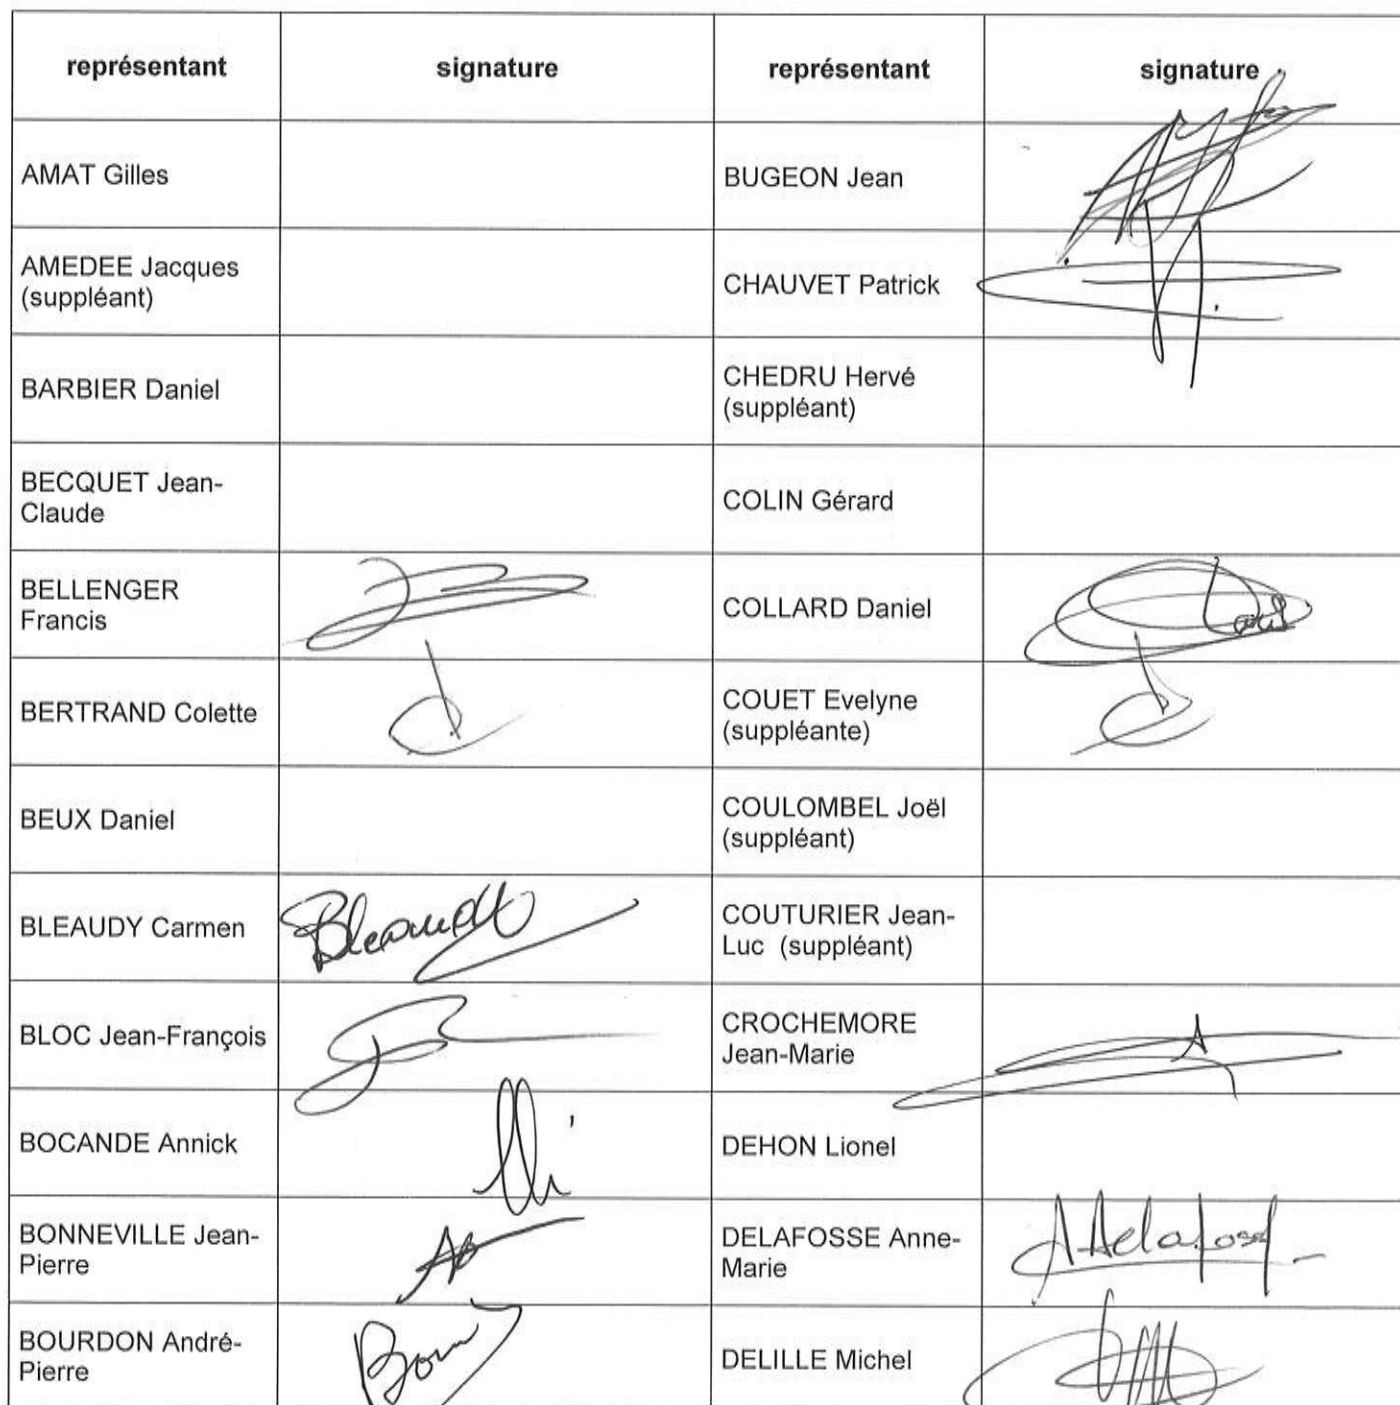 représentant signature représentant signature
AMAT Gilles
BUGEON Jean
AMEDEE Jacques
(suppléant)
CHAUVET Patrick
BARBIER Daniel
CHEDRU Hervé
(suppléant)
BECQUET Jean-
Claude
COLIN Gérard
BELLENGER
Francis
COLLARD Daniel
BERTRAND Colette
COUET Evelyne
(suppléante)
BEUX Daniel
COULOMBEL Joël
(suppléant)
BLEAUDY Carmen
Bleaudy
COUTURIER Jean-
Luc (suppléant)
BLOC Jean-François
CROCHEMORE
Jean-Marie
BOCANDE Annick
DEHON Lionel
BONNEVILLE Jean-
Pierre
DELAFOSSE Anne-
Marie
BOURDON André-
Pierre
DELILLE Michel